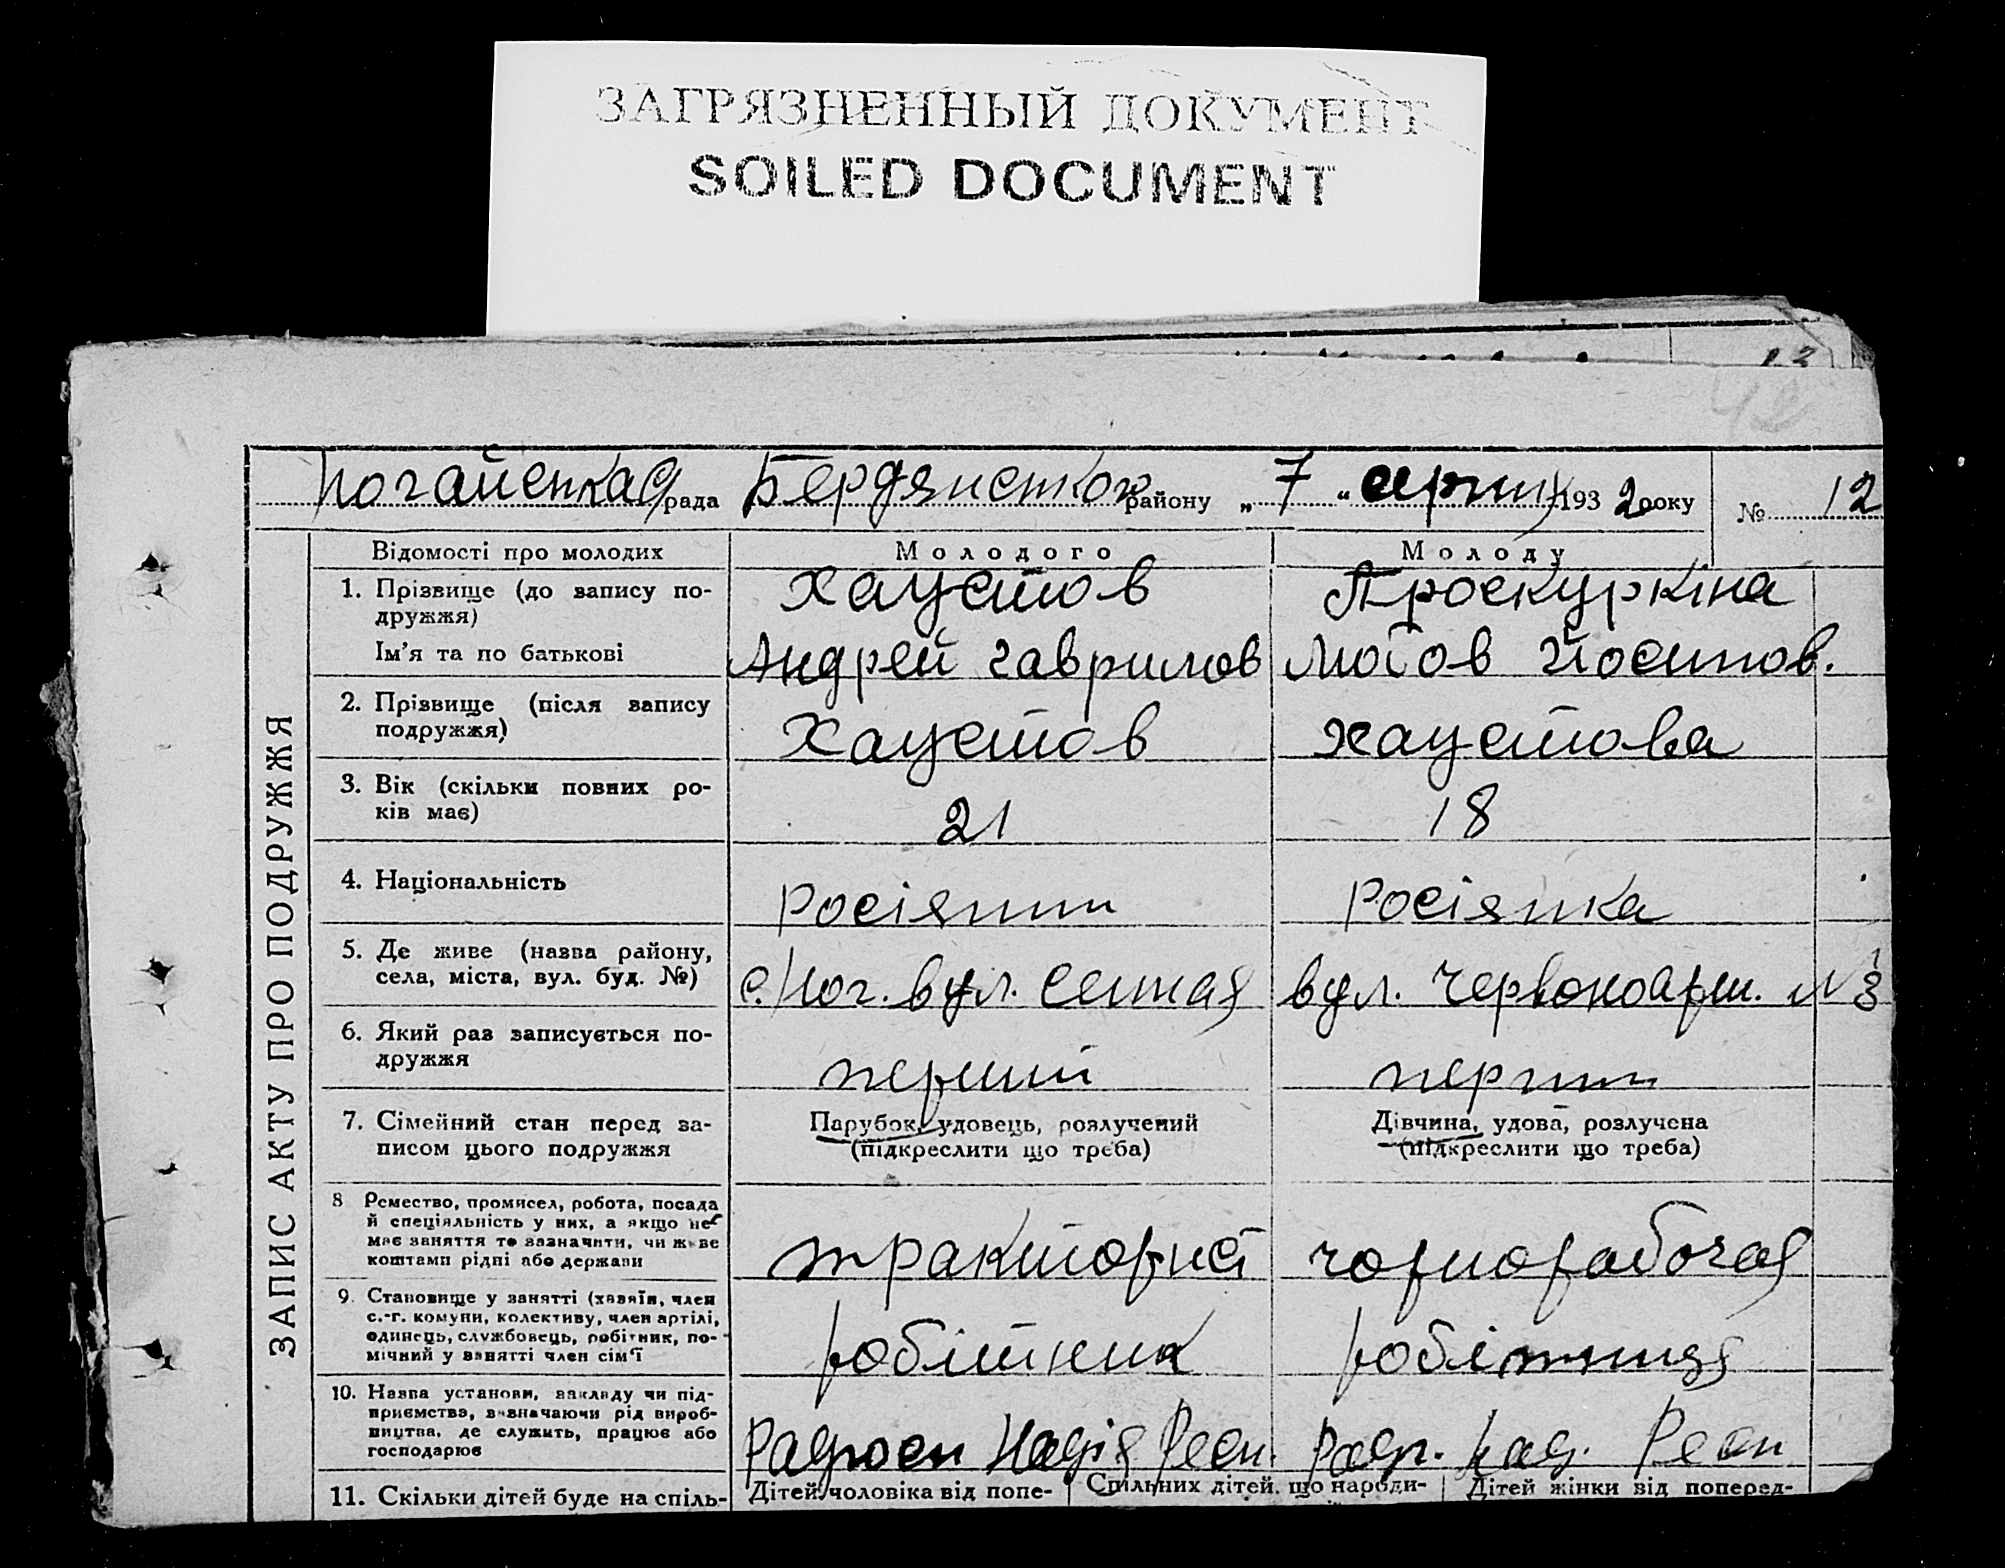 ЗАГРЯЗНЕННЫЙ ДОКУМЕНТ
SOILED DOCUMENT
Ногайська рада Бердянськог району „7“ серпня 1932 року № 12
ЗАПИС АКТУ ПРО ПОДРУЖЖЯ
Відомості про молодих Молодого Молоду
1. Прізвище (до запису по-
дружжя) Хаустов Проскуркіна
Ім'я та по батькові Андрей Гаврилов Любов Йосипов.
2. Прізвище (після запису
подружжя) Хаустов Хаустова
3. Вік (скільки повних ро-
ків має) 21 18
4. Національність росіянин росіянка
5. Де живе (назва району,
села, міста, вул. буд. №) с. Ног. вул. Сенная вул. Червоноарм. № 3
6. Який раз записується по-
дружжя перший перший
7. Сімейний стан перед за-
писом цього подружжя
Парубок, удовець, розлучений
(підкреслити що треба)
Дівчина, удова, розлучена
(підкреслити що треба)
8 Ремество, промисел, робота, посада
й спеціяльність у них, а якщо не
має заняття то зазначити, чи живе
коштами рідні або держави
тракторист чорнорабочая
9. Становище у занятті (хазяїн, член
с.-г. комуни, колективу, член артілі,
одинець, службовець, робітник, по-
мічний у занятті член сім'ї
робітник робітниця
10. Назва установи, закладу чи під-
приємства, зазначаючи рід вироб-
ництва, де служить, працює або
господарює
Радгосп Надія Радг. Над.
11. Скільки дітей буде на спіль- Дітей чоловіка від попе- Спільних дітей, що народи- Дітей жінки від поперед-